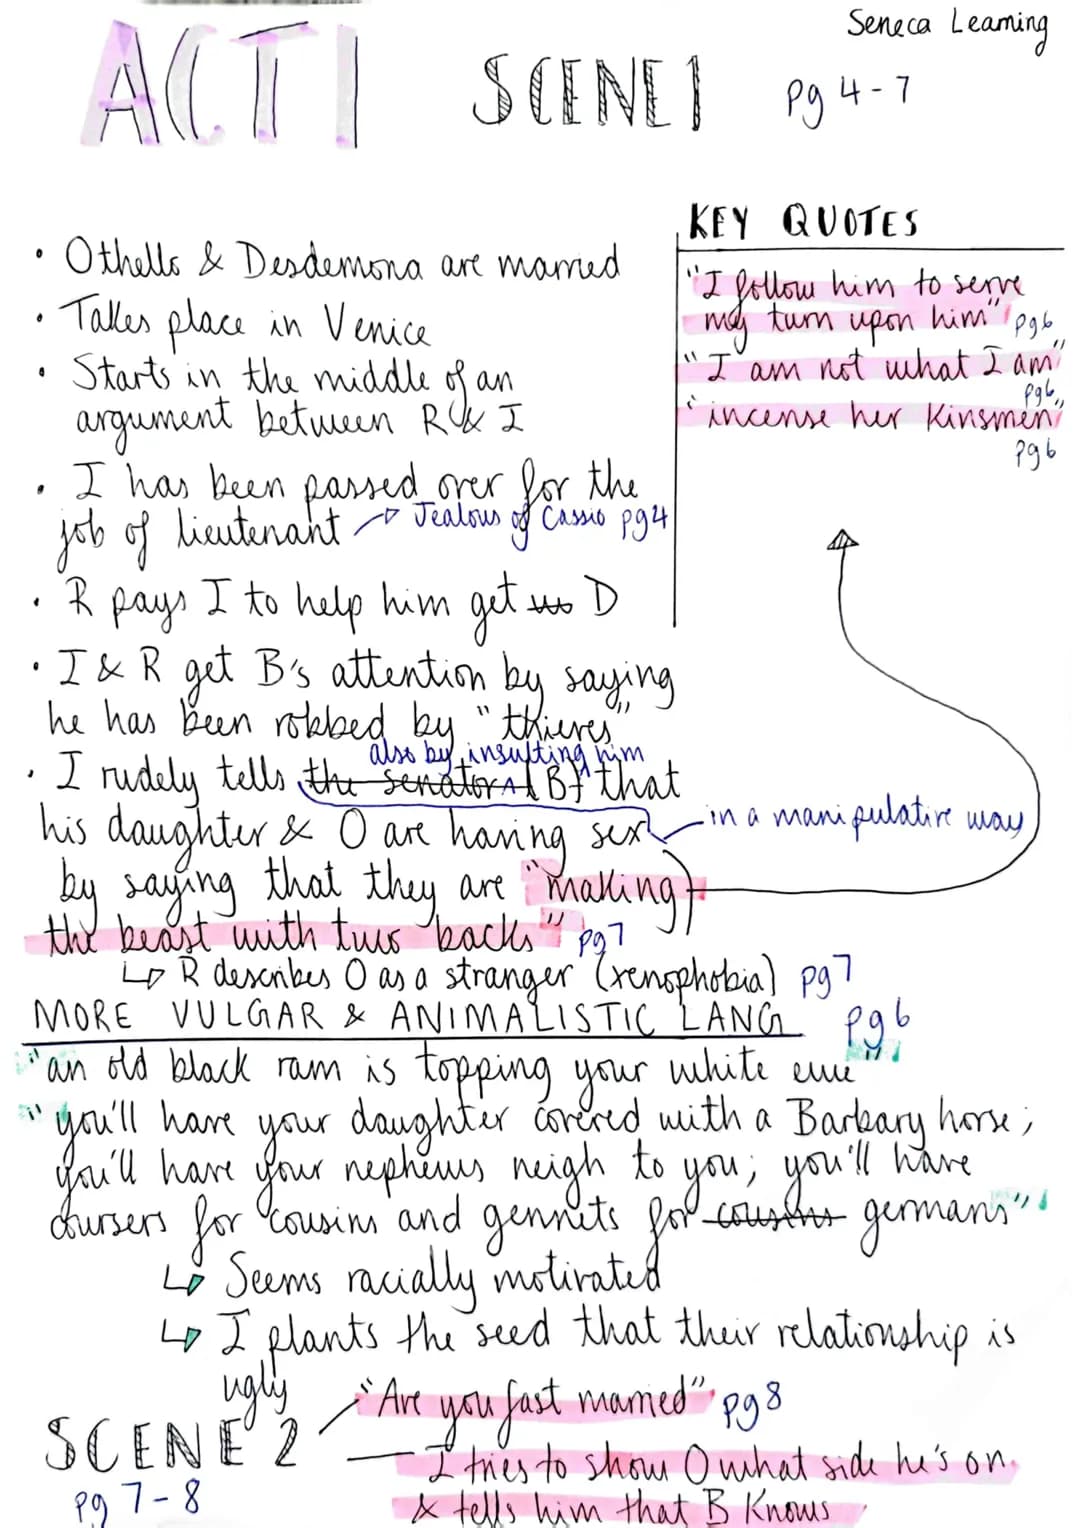 Seneca Learning
ACT 1 SCENE 1 pg 4-7
KEY QUOTES
"I follow him to serve
my turn upon him" pg6
"I am not what I am"
pg6
"incense her kinsmen"
pg6
• Othello & Desdemona are married
• Takes place in Venice
• Starts in the middle of an
argument between R & I
• I has been passed over for the
job of lieutenant → Jealous of Cassio pg4
• R pays I to help him get D
• I & R get B's attention by saying
he has been robbed by "thieves"
also by insulting him
• I rudely tells the senator (B) that
his daughter & O are having sex
in a manipulative way
by saying that they are "making
the beast with two backs" pg7
↳ R describes O as a stranger (xenophobia) pg7
MORE VULGAR & ANIMALISTIC LANG pg6
"an old black ram is topping your white ewe"
"you'll have your daughter covered with a Barbary horse;
you'll have your nephews neigh to you; you'll have
coursers for cousins and gennets for cousins germans"
↳ Seems racially motivated
↳ I plants the seed that their relationship is
ugly
SCENE 2
pg 7-8
"Are you fast married" pg8
I tries to show O what side he's on
& tells him that B knows